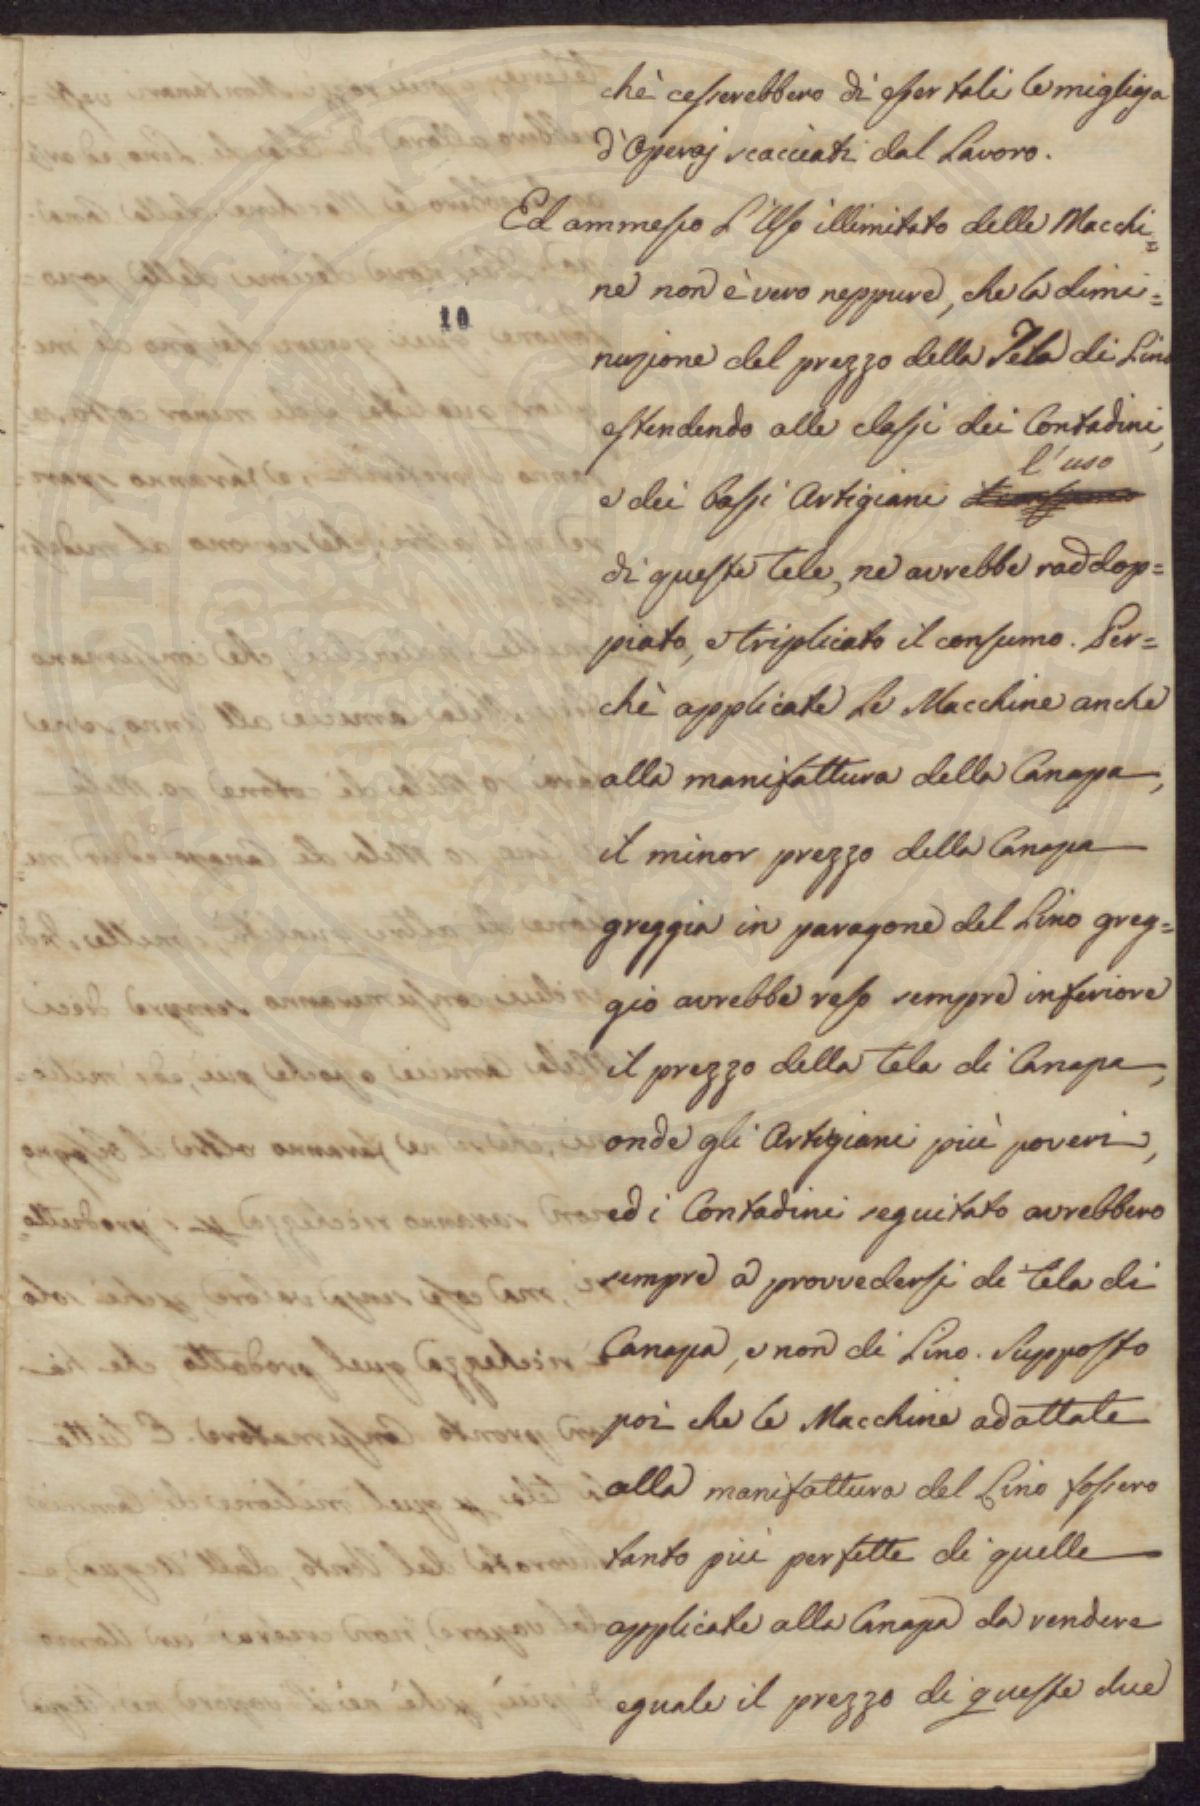 chè cesserebbero di esser tali le migliaja
d'Operaj scacciati dal Lavoro.
Ed ammesso L'Uso illimitato delle Macchi=
ne non è vero neppure, che la dimi=
nuzione del prezzo della Tela di Lino
estendendo alle classi dei Contadini,
l'uso
e dei bassi Artigiani
di queste tele, ne avrebbe raddop=
piato, e triplicato il consumo. Per=
chè applicate Le Macchine anche
alla manifattura della Canapa,
il minor prezzo della Canapa
greggia in paragone del Lino greg=
gio avrebbe reso sempre inferiore
il prezzo della tela di Canapa,
onde gli Artigiani più poveri,
ed i Contadini seguitato avrebbero
sempre a provvedersi di tela di
Canapa, e non di Lino. Supposto
poi che le Macchine adattate
alla manifattura del Lino fossero
tanto più perfette di quelle
applicate alla Canapa da rendere
eguale il prezzo di queste due
10